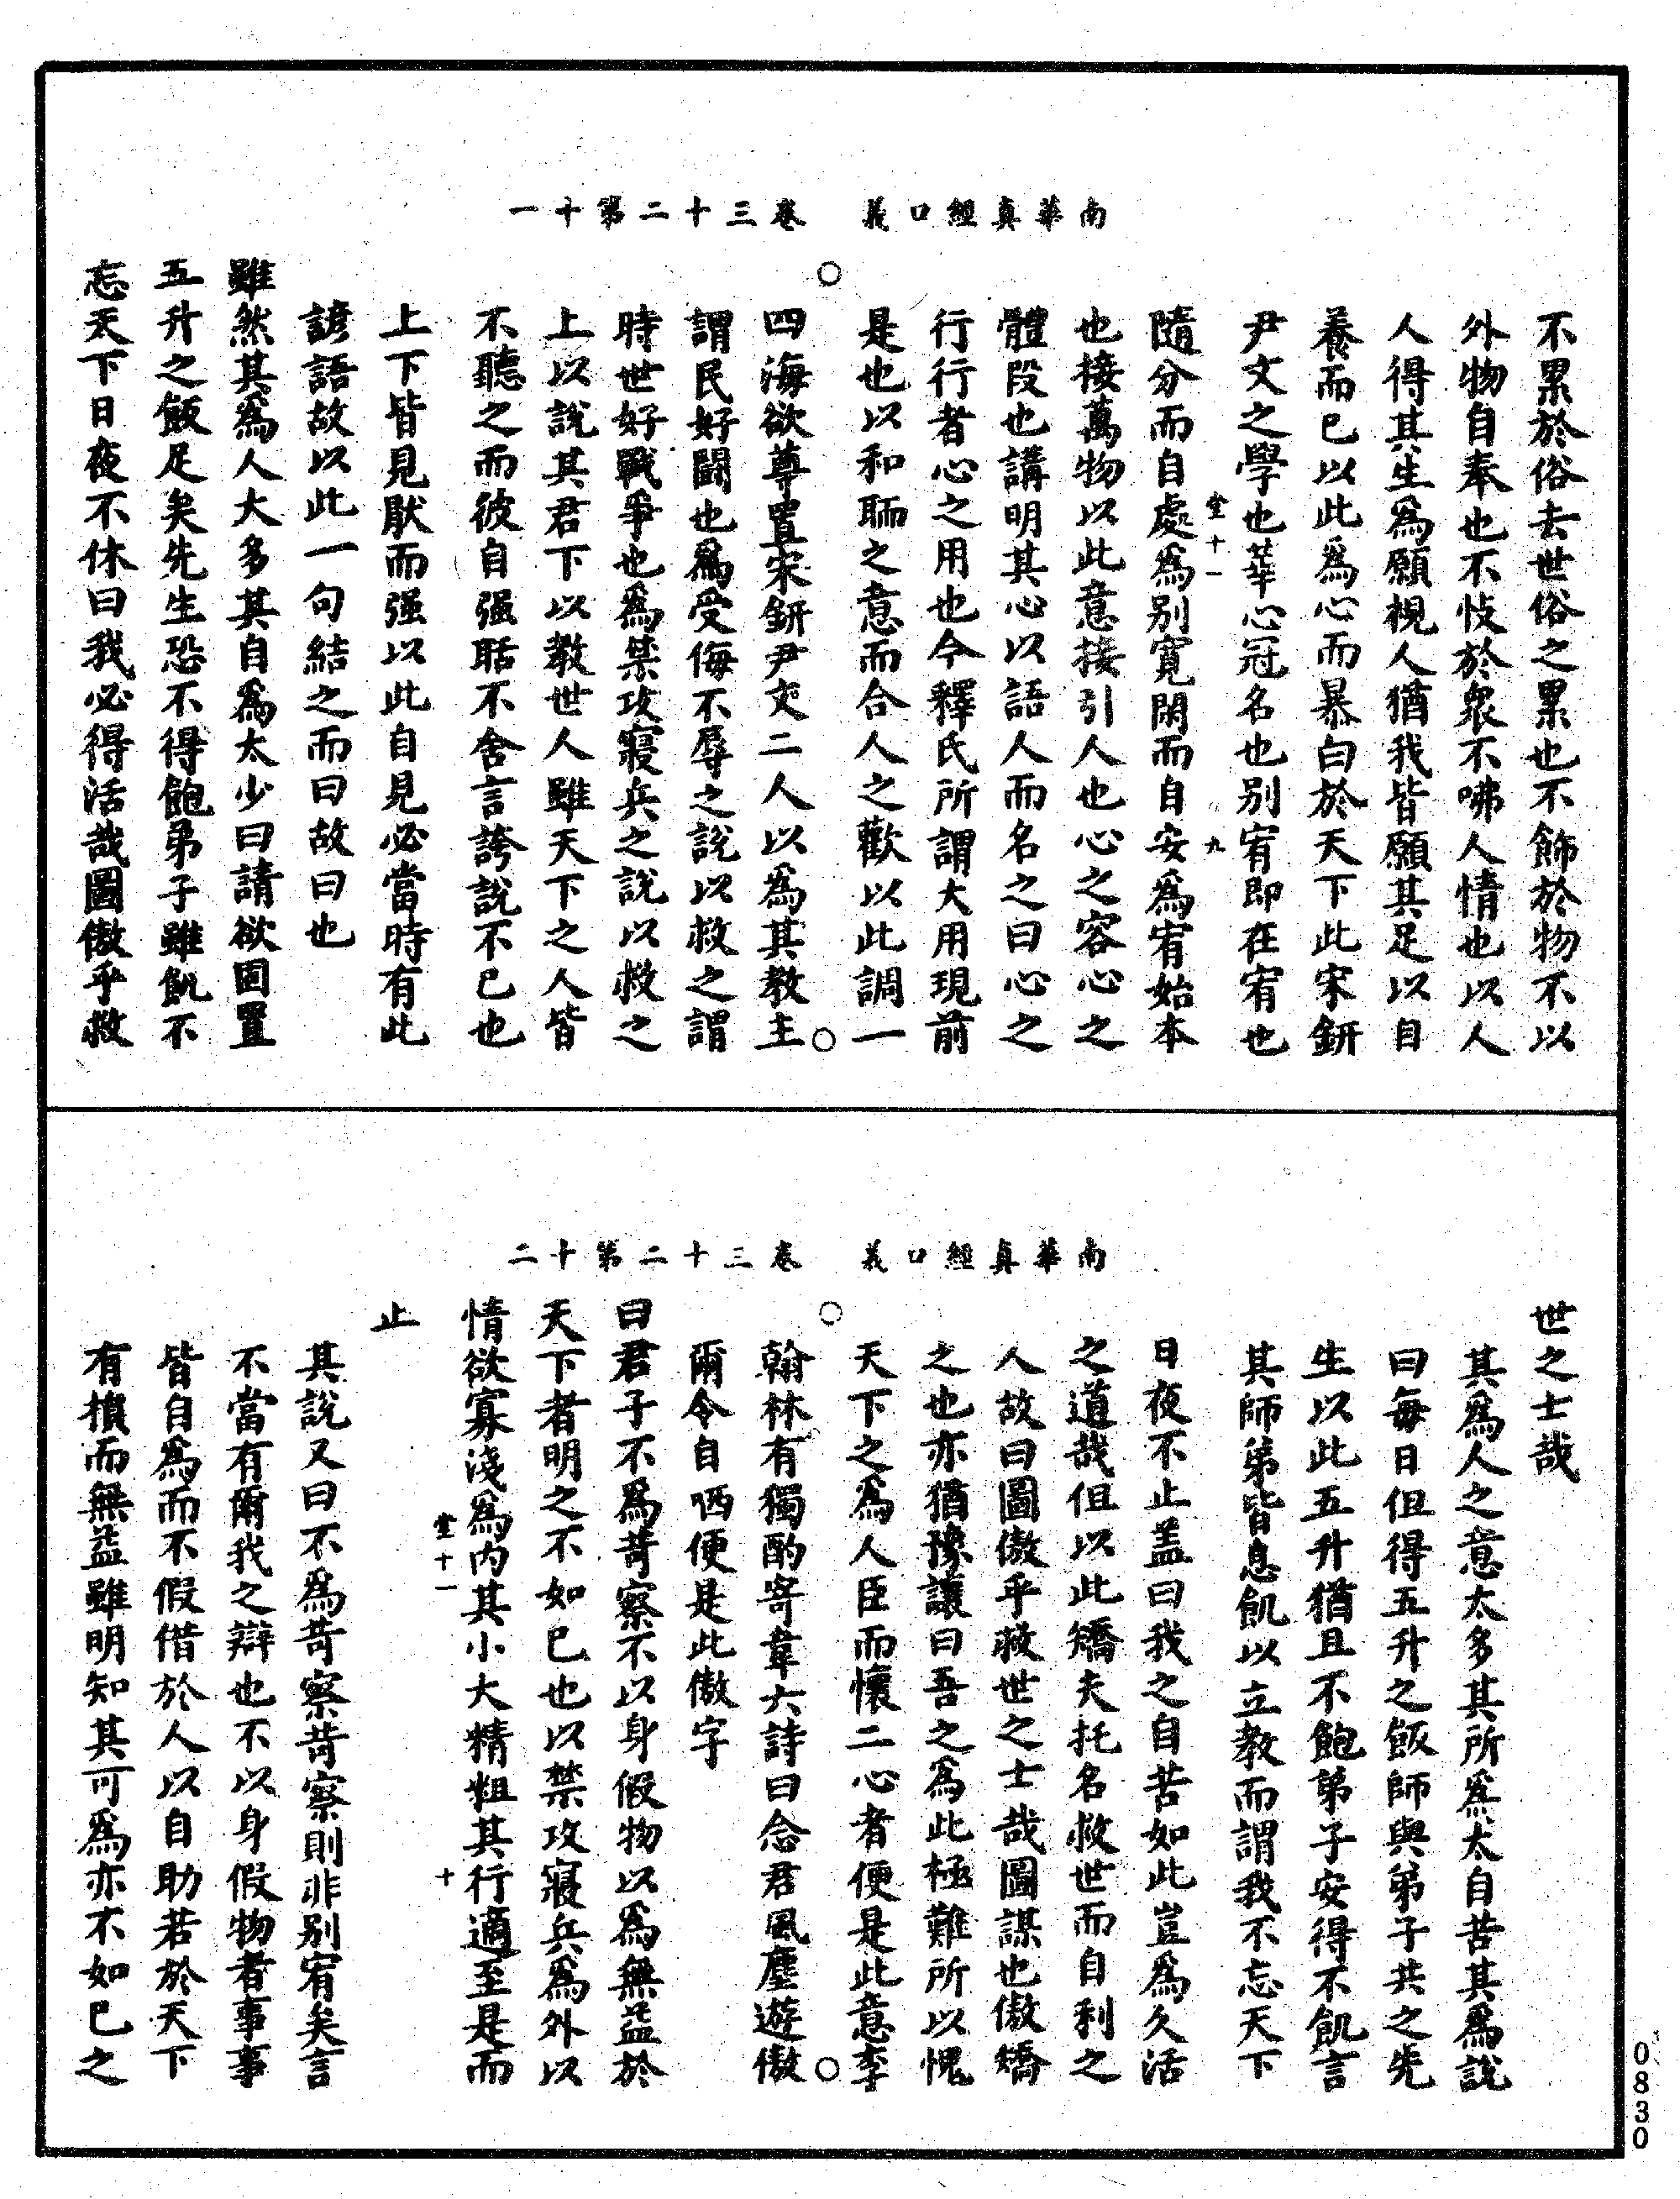 南華真經口義　卷三十二第十一
不累於俗去世俗之累也不飾於物不以
外物自奉也不忮於衆不咈人情也以人
人得其生爲願視人猶我皆願其足以自
養而已以此爲心而暴白於天下此宋鈃
尹文之學也華心冠名也別宥即在宥也
堂十一　九
隨分而自處爲別寬閑而自安爲宥始本
也接萬物以此意接引人也心之容心之
體段也講明其心以語人而名之曰心之
行行者心之用也今釋氏所謂大用現前
是也以和聏之意而合人之歡以此調一
四海欲尊置宋鈃尹文二人以爲其教主
謂民好鬪也爲受侮不辱之說以救之謂
時世好戰爭也爲禁攻寢兵之說以救之
上以說其君下以教世人雖天下之人皆
不聽之而彼自强聒不舍言誇說不已也
上下皆見厭而强以此自見必當時有此
諺語故以此一句結之而曰故曰也
雖然其爲人大多其自爲太少曰請欲固置
五升之飯足矣先生恐不得飽弟子雖飢不
忘天下日夜不休曰我必得活哉圖傲乎救
南華真經口義　卷三十二第十二
世之士哉
其爲人之意太多其所爲太自苦其爲說
曰每日但得五升之飯師與弟子共之先
生以此五升猶且不飽弟子安得不飢言
其師弟皆忍飢以立教而謂我不忘天下
日夜不止盖曰我之自苦如此豈爲久活
之道哉但以此矯夫托名救世而自利之
人故曰圖傲乎救世之士哉圖謀也傲矯
之也亦猶豫讓曰吾之爲此極難所以愧
天下之爲人臣而懷二心者便是此意李
翰林有獨酌寄韋六詩曰念君風塵遊傲
爾令自哂便是此傲字
曰君子不爲苛察不以身假物以爲無益於
天下者明之不如已也以禁攻寢兵爲外以
情欲寡淺爲內其小大精粗其行適至是而
堂十一　十
止
其說又曰不爲苛察苛察則非別宥矣言
不當有爾我之辯也不以身假物者事事
皆自爲而不假借於人以自助若於天下
有損而無益雖明知其可爲亦不如已之
0830